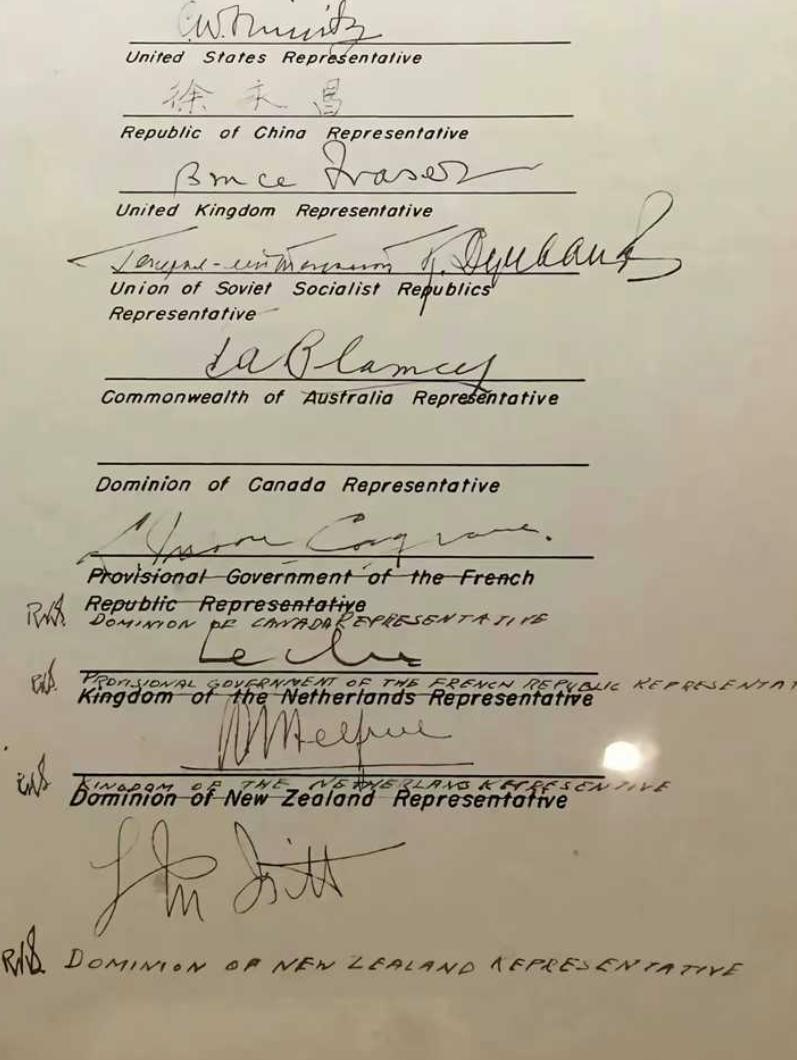 C.W. Nimitz
United States Representative
徐永昌
Republic of China Representative
Bruce Fraser
United Kingdom Representative
Union of Soviet Socialist Republics
Representative
Blamey
Commonwealth of Australia Representative
Dominion of Canada Representative
Moore Cosgrave.
Provisional Government of the French
Republic Representative
RKS. DOMINION OF CANADA REPRESENTATIVE
Leclerc
RKS. PROVISIONAL GOVERNMENT OF THE FRENCH REPUBLIC REPRESENTAT
Kingdom of the Netherlands Representative
Helfrich
RKS KINGDOM OF THE NETHERLANDS REPRESENTATIVE
Dominion of New Zealand Representative
Isitt
RKS. DOMINION OF NEW ZEALAND REPRESENTATIVE